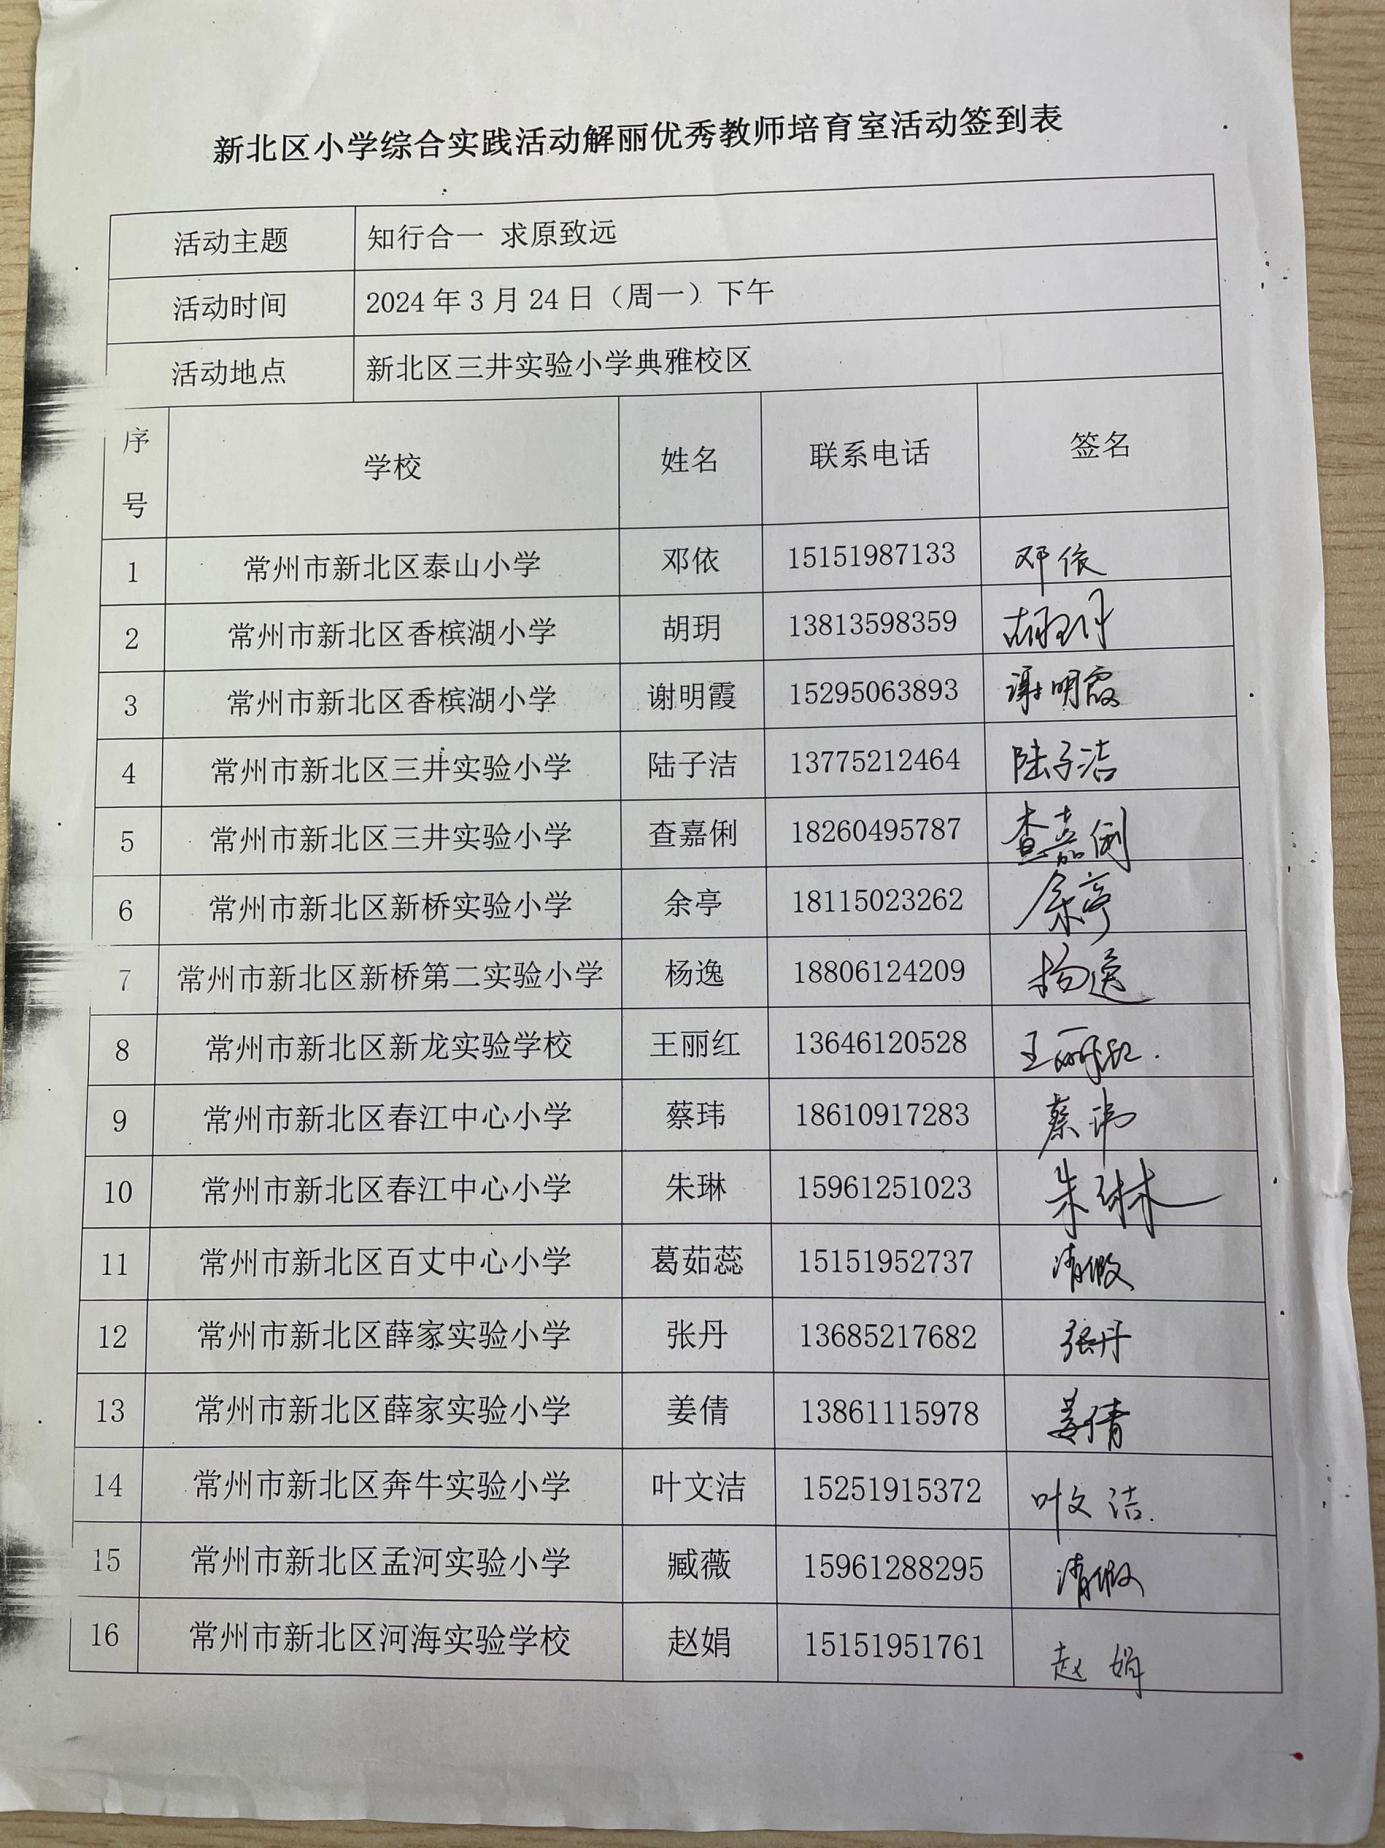 新北区小学综合实践活动解丽优秀教师培育室活动签到表
活动主题 知行合一 求原致远
活动时间 2024 年 3 月 24 日（周一）下午
活动地点 新北区三井实验小学典雅校区
序号 学校 姓名 联系电话 签名
1 常州市新北区泰山小学 邓依 15151987133 邓依
2 常州市新北区香槟湖小学 胡玥 13813598359 胡玥
3 常州市新北区香槟湖小学 谢明霞 15295063893 谢明霞
4 常州市新北区三井实验小学 陆子洁 13775212464 陆子洁
5 常州市新北区三井实验小学 查嘉俐 18260495787 查嘉俐
6 常州市新北区新桥实验小学 余亭 18115023262 余亭
7 常州市新北区新桥第二实验小学 杨逸 18806124209 杨逸
8 常州市新北区新龙实验学校 王丽红 13646120528 王丽红.
9 常州市新北区春江中心小学 蔡玮 18610917283 蔡玮
10 常州市新北区春江中心小学 朱琳 15961251023 朱琳
11 常州市新北区百丈中心小学 葛茹蕊 15151952737 请假
12 常州市新北区薛家实验小学 张丹 13685217682 张丹
13 常州市新北区薛家实验小学 姜倩 13861115978 姜倩
14 常州市新北区奔牛实验小学 叶文洁 15251915372 叶文洁.
15 常州市新北区孟河实验小学 臧薇 15961288295 请假
16 常州市新北区河海实验学校 赵娟 15151951761 赵娟